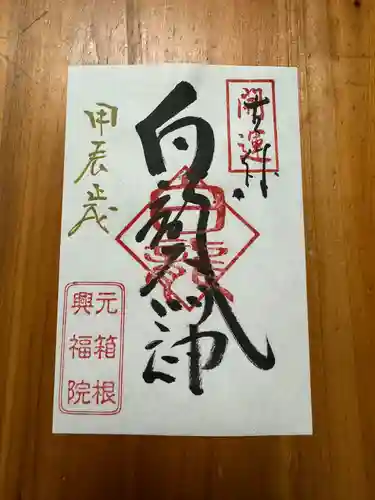 開運
奉拝
白龍神
甲辰歳
元箱根
興福院